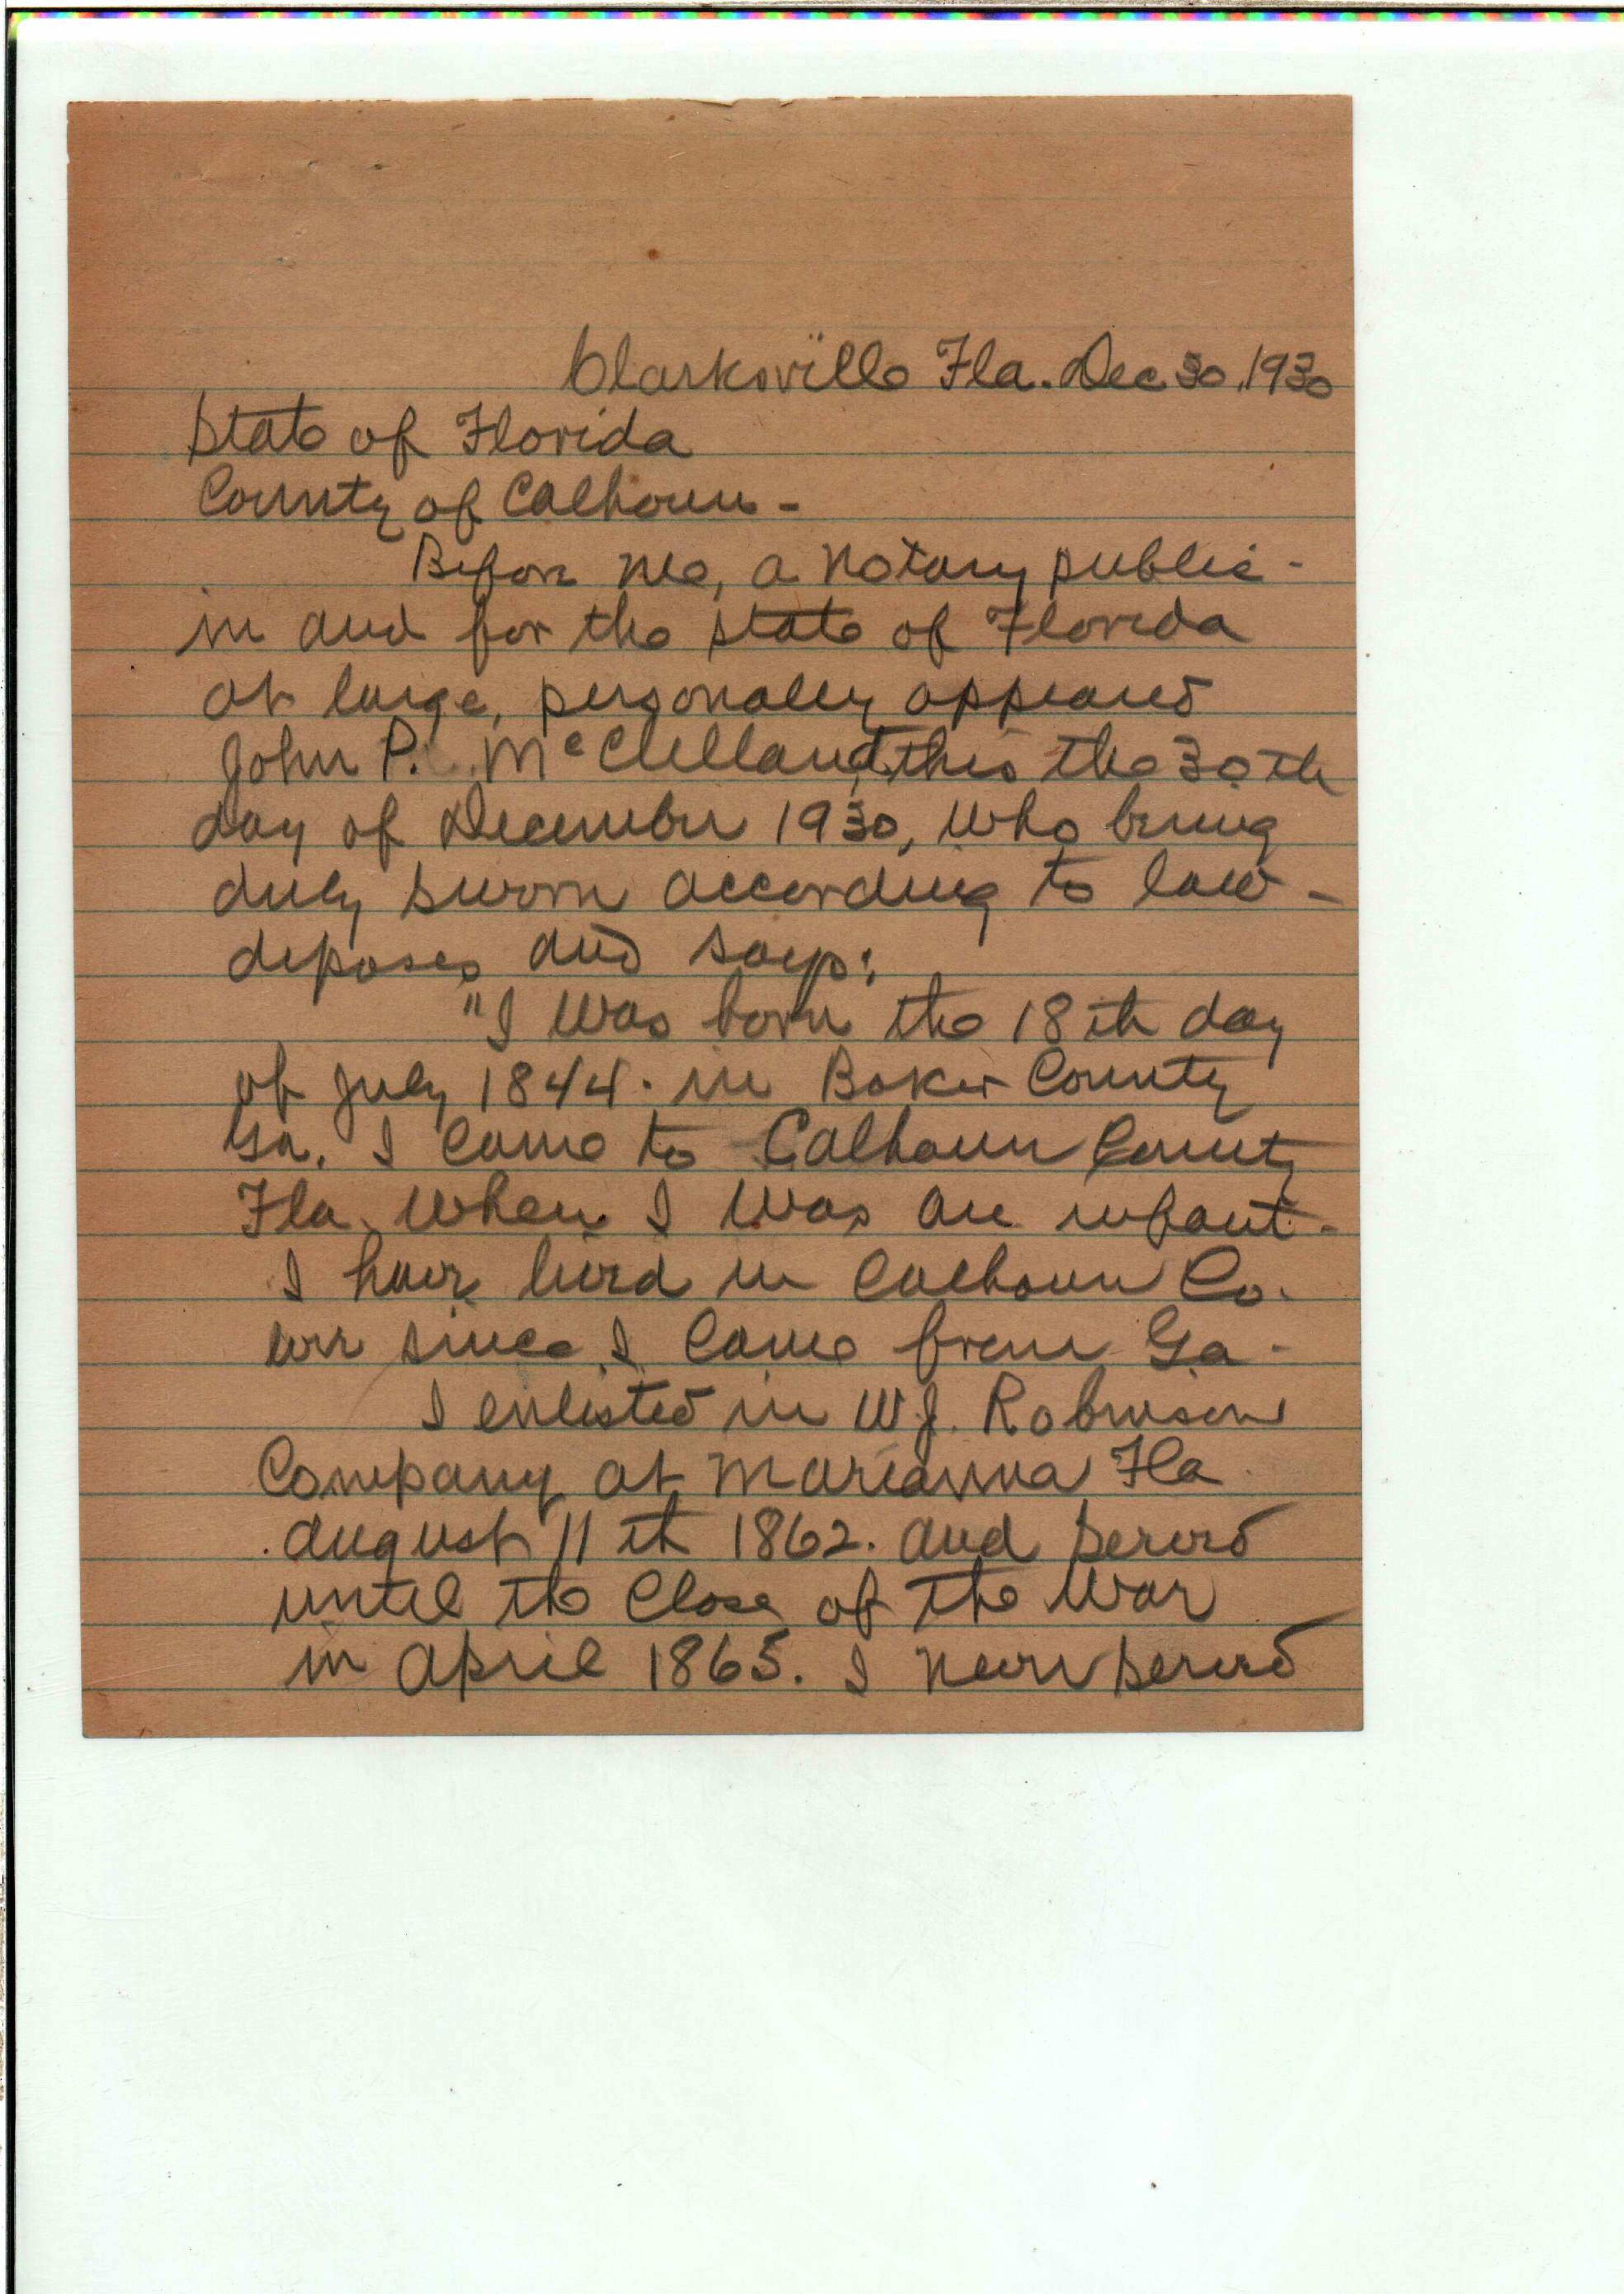 Clarksville Fla. Dec 30, 1930
State of Florida
County of Calhoun -
Before me, a Notary public -
in and for the state of Florida
at large, personally appeared
John P. McClelland, this the 30th
day of December 1930, who being
duly sworn according to law -
deposes and says:
"I was born the 18th day
of July 1844. in Baker County
Ga. I came to Calhoun County
Fla. when I was an infant.
I have lived in Calhoun Co.
ever since I came from Ga -
I enlisted in W.J. Robinson
Company at Marianna Fla.
August 11th 1862. and served
until the close of the war
in April 1865. I never served